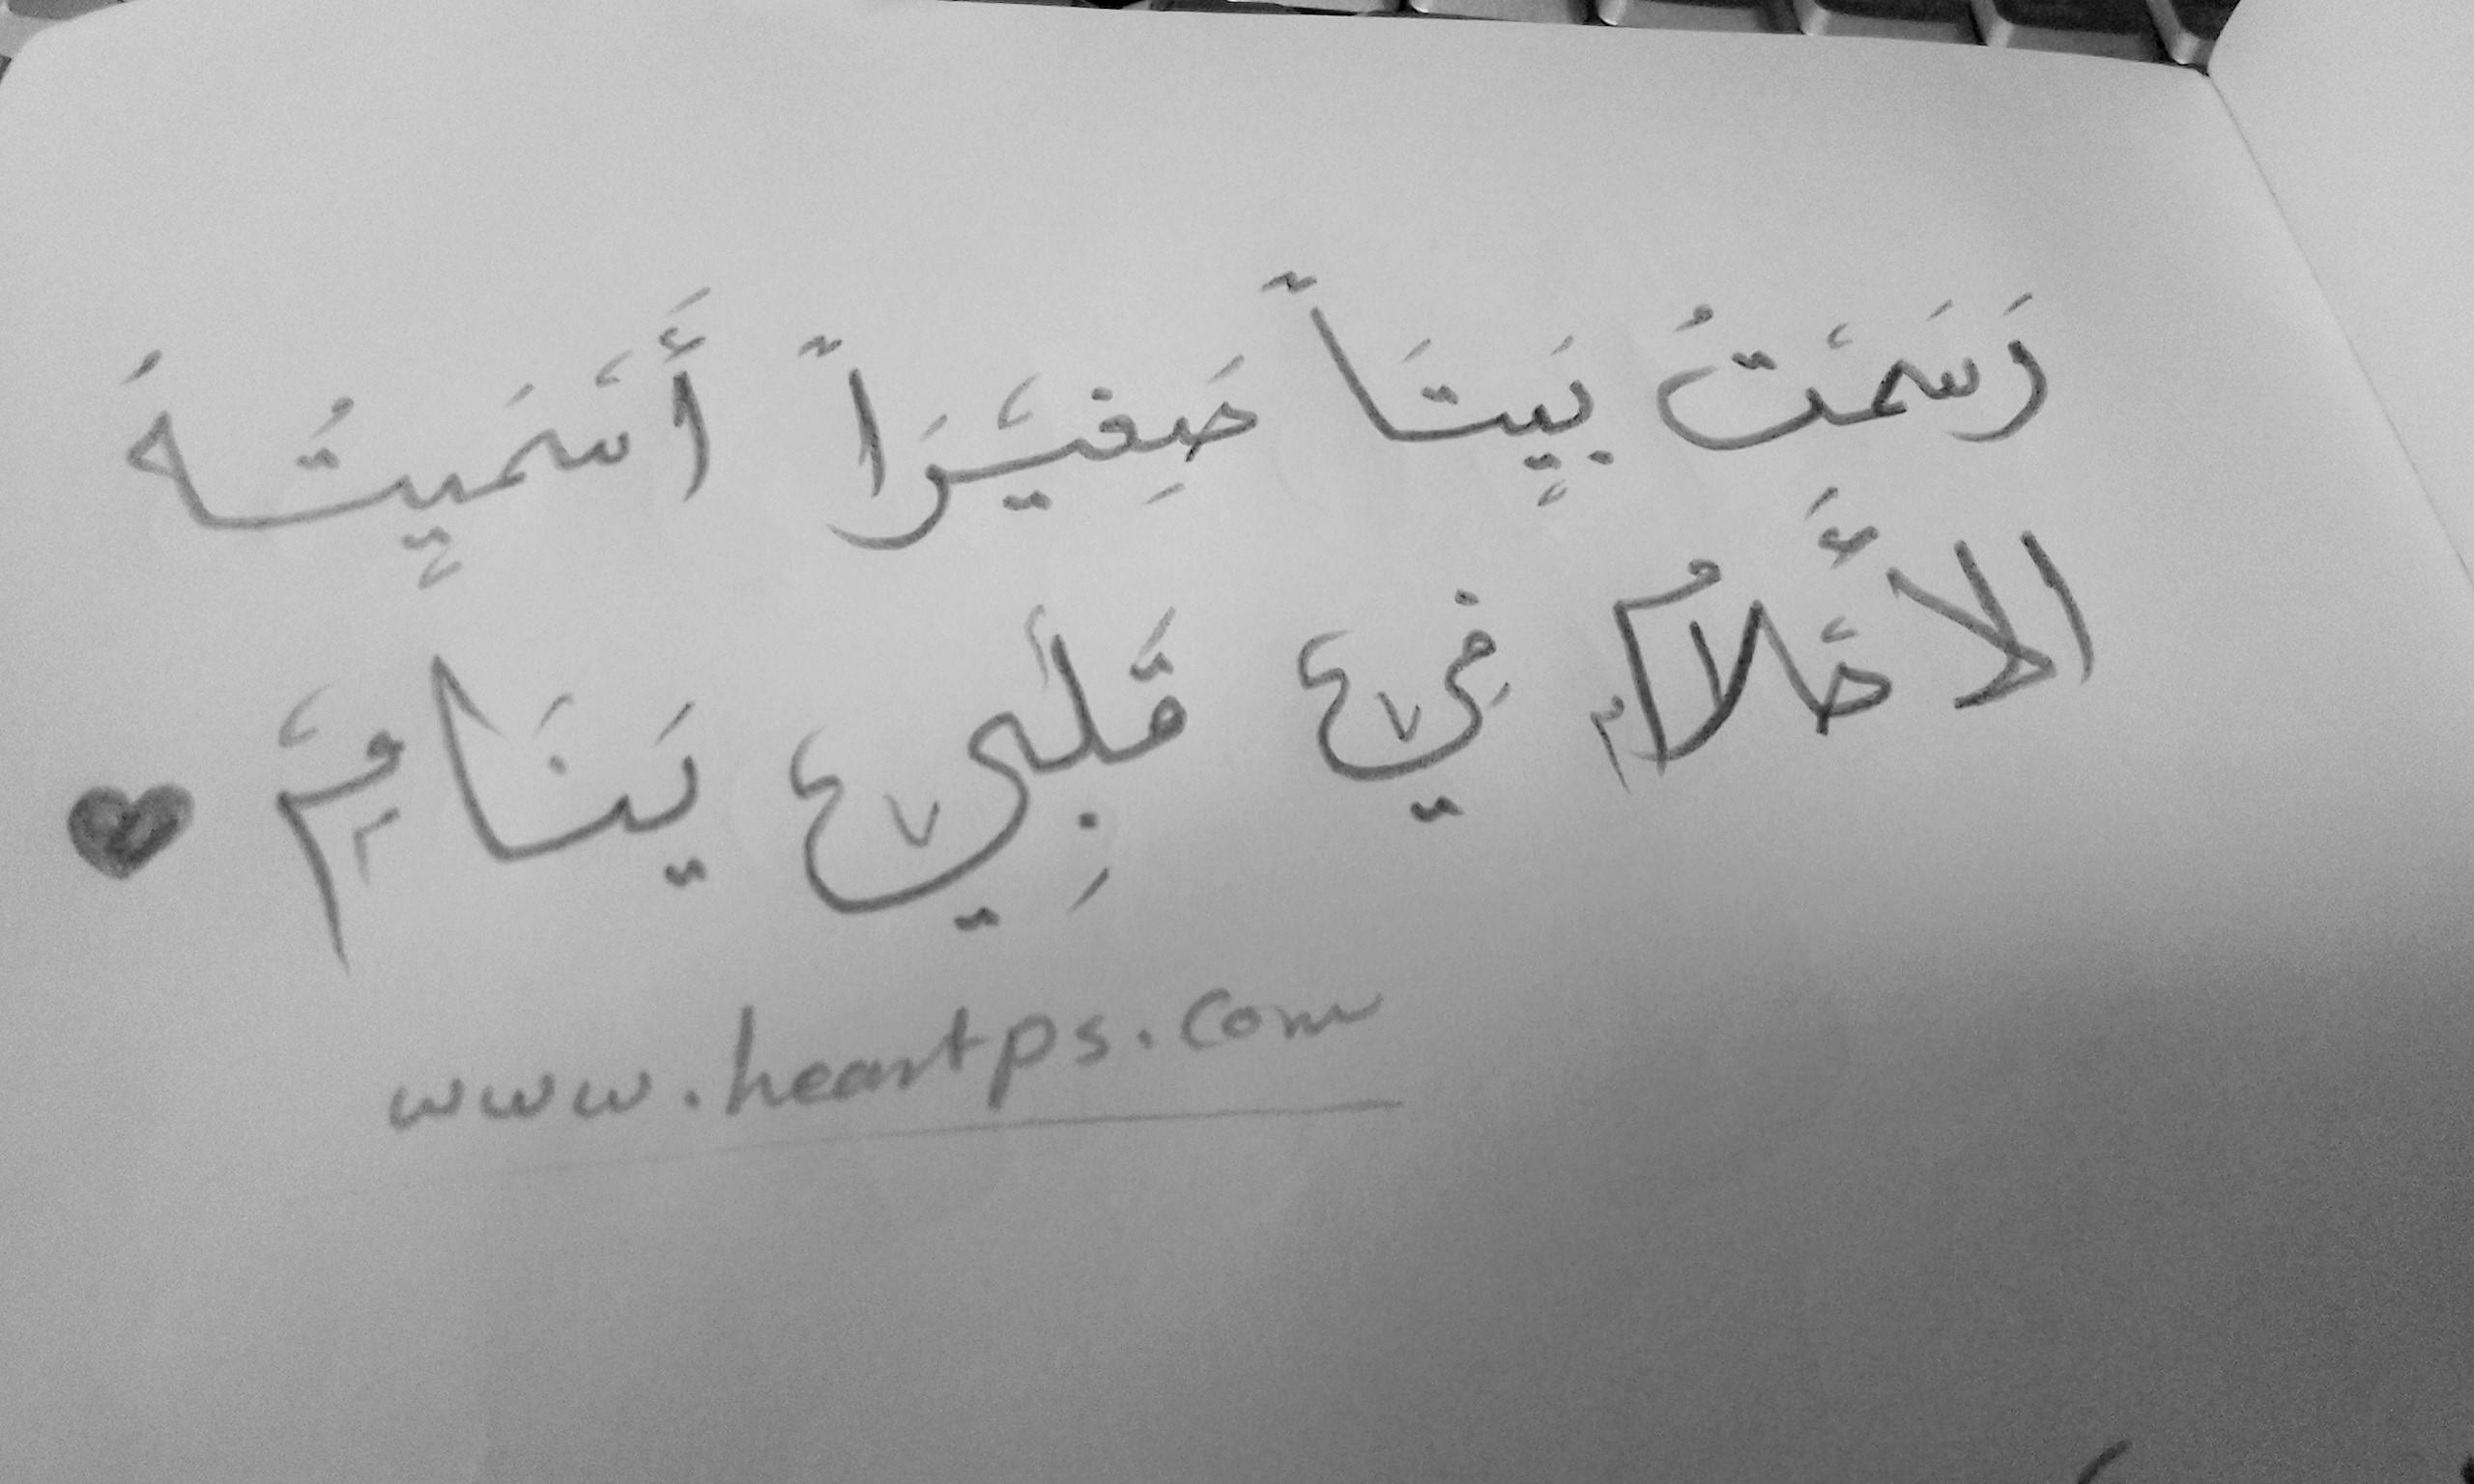 رَسَمْتُ بَيْتَاً صَغِيْرَاً أَسْمَيْتُهُ
الأَحْلَامُ فِي قَلْبِي يَنَامُ ♥
www.heartps.com